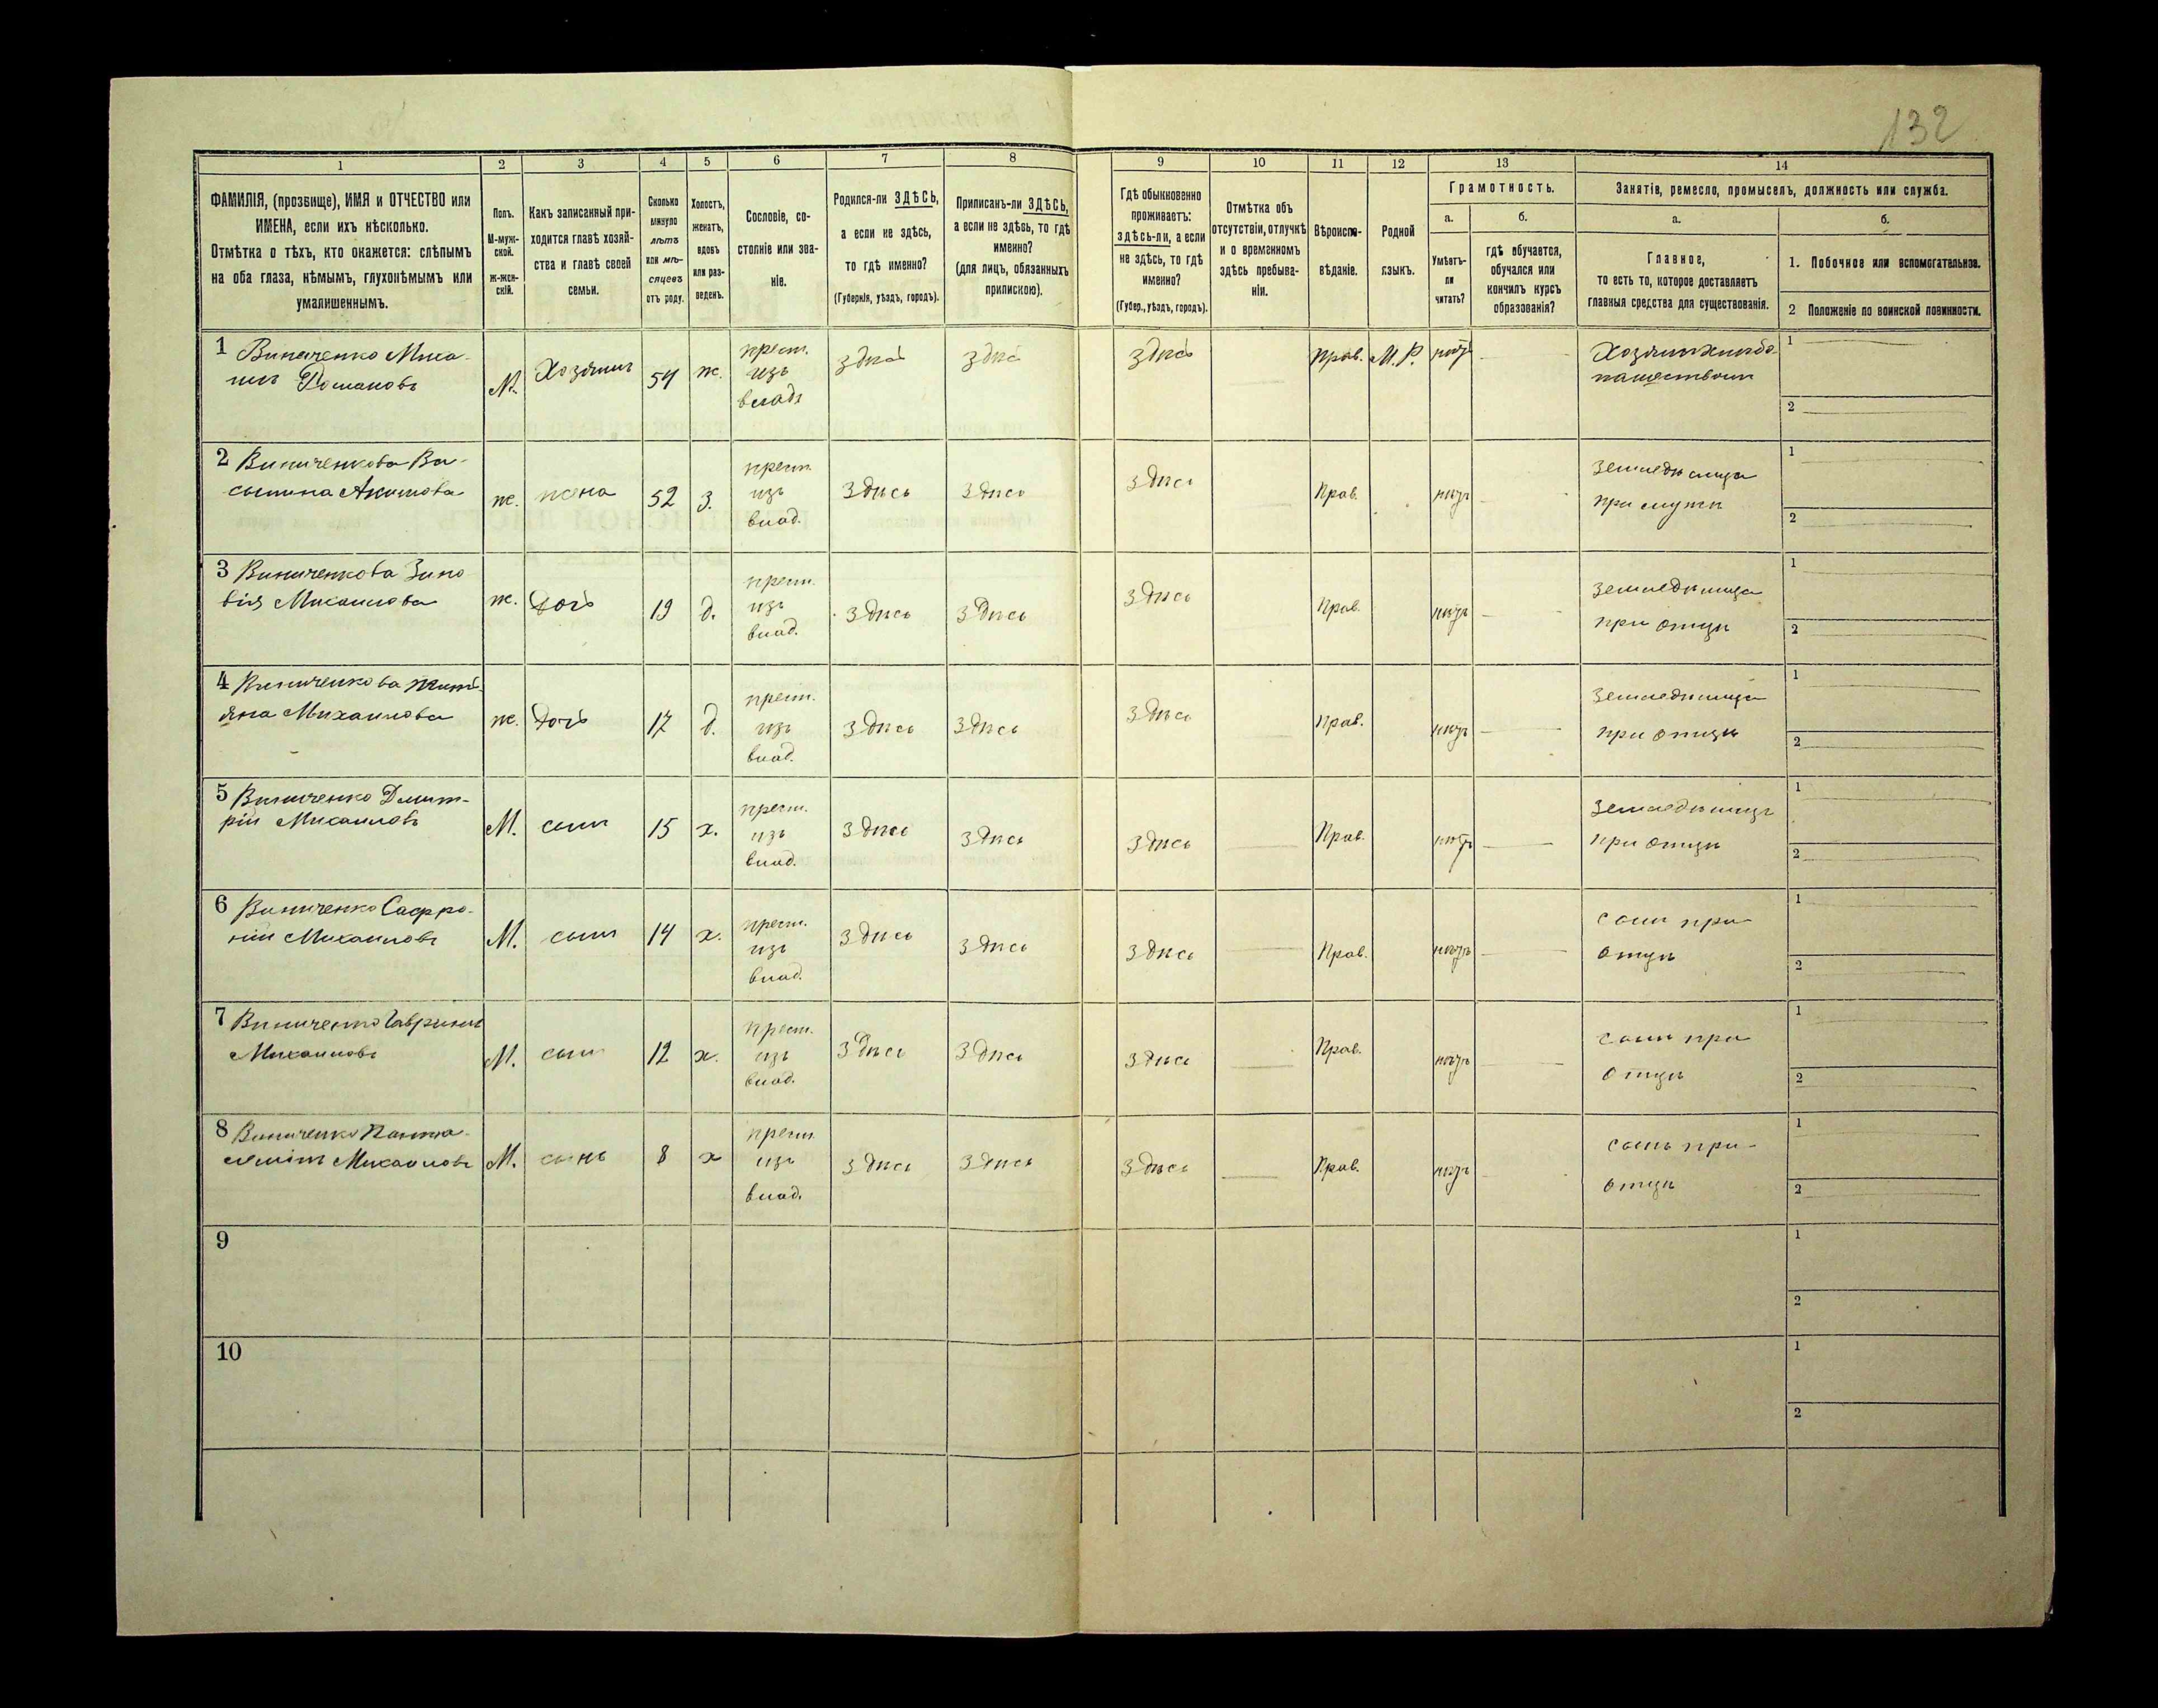 132
1 2 3 4 5 6 7 8 9 10 11 12 13 14
ФАМИЛІЯ, (прозвище), ИМЯ и ОТЧЕСТВО или
ИМЕНА, если ихъ нѣсколько.
Отмѣтка о тѣхъ, кто окажется: слѣпымъ
на оба глаза, нѣмымъ, глухонѣмымъ или
умалишеннымъ.
Полъ.
М-муж-
ской.
Ж-жен-
скій.
Какъ записанный при-
ходится главѣ хозяй-
ства и главѣ своей
семьи.
Сколько
минуло
лѣтъ
или мѣ-
сяцевъ
отъ роду.
Холостъ,
женатъ,
вдовъ
или раз-
веденъ.
Сословіе, со-
стояніе или зва-
ніе.
Родился-ли ЗДѢСЬ,
а если не здѣсь,
то гдѣ именно?
(Губернія, уѣздъ, городъ).
Приписанъ-ли ЗДѢСЬ,
а если не здѣсь, то гдѣ
именно?
(для лицъ, обязанныхъ
припискою).
Гдѣ обыкновенно
проживаетъ:
ЗДѢСЬ-ЛИ, а если
не здѣсь, то гдѣ
именно?
(Губер., уѣздъ, городъ).
Отмѣтка объ
отсутствіи, отлучкѣ
и о временномъ
здѣсь пребыва-
ніи.
Вѣроиспо-
вѣданіе.
Родной
языкъ.
Грамотность.
а.
Умѣетъ-
ли
читать?
б.
гдѣ обучается,
обучался или
кончилъ курсъ
образованія?
Занятіе, ремесло, промыселъ, должность или служба.
а.
Главное,
то есть то, которое доставляетъ
главныя средства для существованія.
б.
1. Побочное или вспомогательное.
2 Положеніе по воинской повинности.
1 Виниченко Миха-
илъ Романовъ
М. Хозяинъ 54 ж. крест. изъ влад. здѣсь здѣсь здѣсь Прав. М.Р. нѣтъ
1
2
2 Виниченкова Ва-
ж. жена 52 з. крест. изъ влад. Здѣсь Здѣсь Здѣсь Прав. нѣтъ Земледѣлица при мужѣ
1
2
3 Виниченкова Зино
вія Михаилова
ж. Дочь 19 д. крест. изъ влад. Здѣсь Здѣсь Здѣсь Прав. нѣтъ Земледѣлица при отцѣ
1
2
4 Виниченкова
Михаилова
ж. Дочь 17 д. крест. изъ влад. Здѣсь Здѣсь Здѣсь Прав. нѣтъ Земледѣлица при отцѣ
1
2
5 Виниченко Дмит-
рій Михаиловъ
М. сынъ 15 х. крест. изъ влад. Здѣсь Здѣсь Здѣсь Прав. нѣтъ Земледѣлецъ при отцѣ
1
2
6 Виниченко Сафро-
ній Михаиловъ
М. сынъ 14 х. крест. изъ влад. Здѣсь Здѣсь Здѣсь Прав. нѣтъ сынъ при отцѣ
1
2
7 Виниченко Гавриилъ
Михаиловъ
М. сынъ 12 х. крест. изъ влад. Здѣсь Здѣсь Здѣсь Прав. нѣтъ сынъ при отцѣ
1
2
8 Виниченко Пантю-
Михаиловъ
М. сынъ 8 х крест изъ влад. Здѣсь Здѣсь Здѣсь Прав. нѣтъ сынъ при отцѣ
1
2
9
1
2
10
1
2